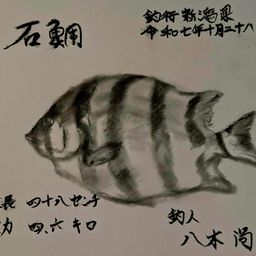 石鯛
釣行 新潟県
令和七年十月二十八
長 四十八センチ
四.六 キロ
釣人
八木 尚